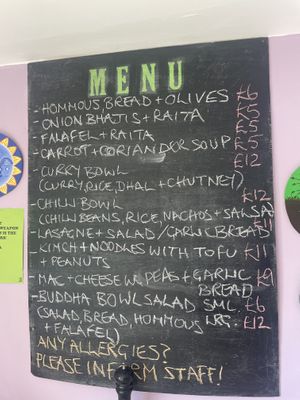 MENU
- HOMMOUS, BREAD + OLIVES £6
- ONION BHATJS + RAITA £5
- FALAFEL + RAITA £5
- CARROT + CORIANDER SOUP £5
- CURRY BOWL £12
(CURRY, RICE, DHAL + CHUTNEY)
- CHILLI BOWL £12
(CHILLI BEANS, RICE, NACHOS + SALSA)
- LASAGNE + SALAD / GARLIC BREAD £11
- KIMCH + NOODLES WITH TOFU £11
+ PEANUTS
- MAC + CHEESE W. PEAS + GARLIC £9
BREAD
- BUDDHA BOWL SALAD SML. £6
(SALAD, BREAD, HOMMOUS LRG. £12
+ FALAFEL)
ANY ALLERGIES?
PLEASE INFORM STAFF!
WEAPON
IS THE